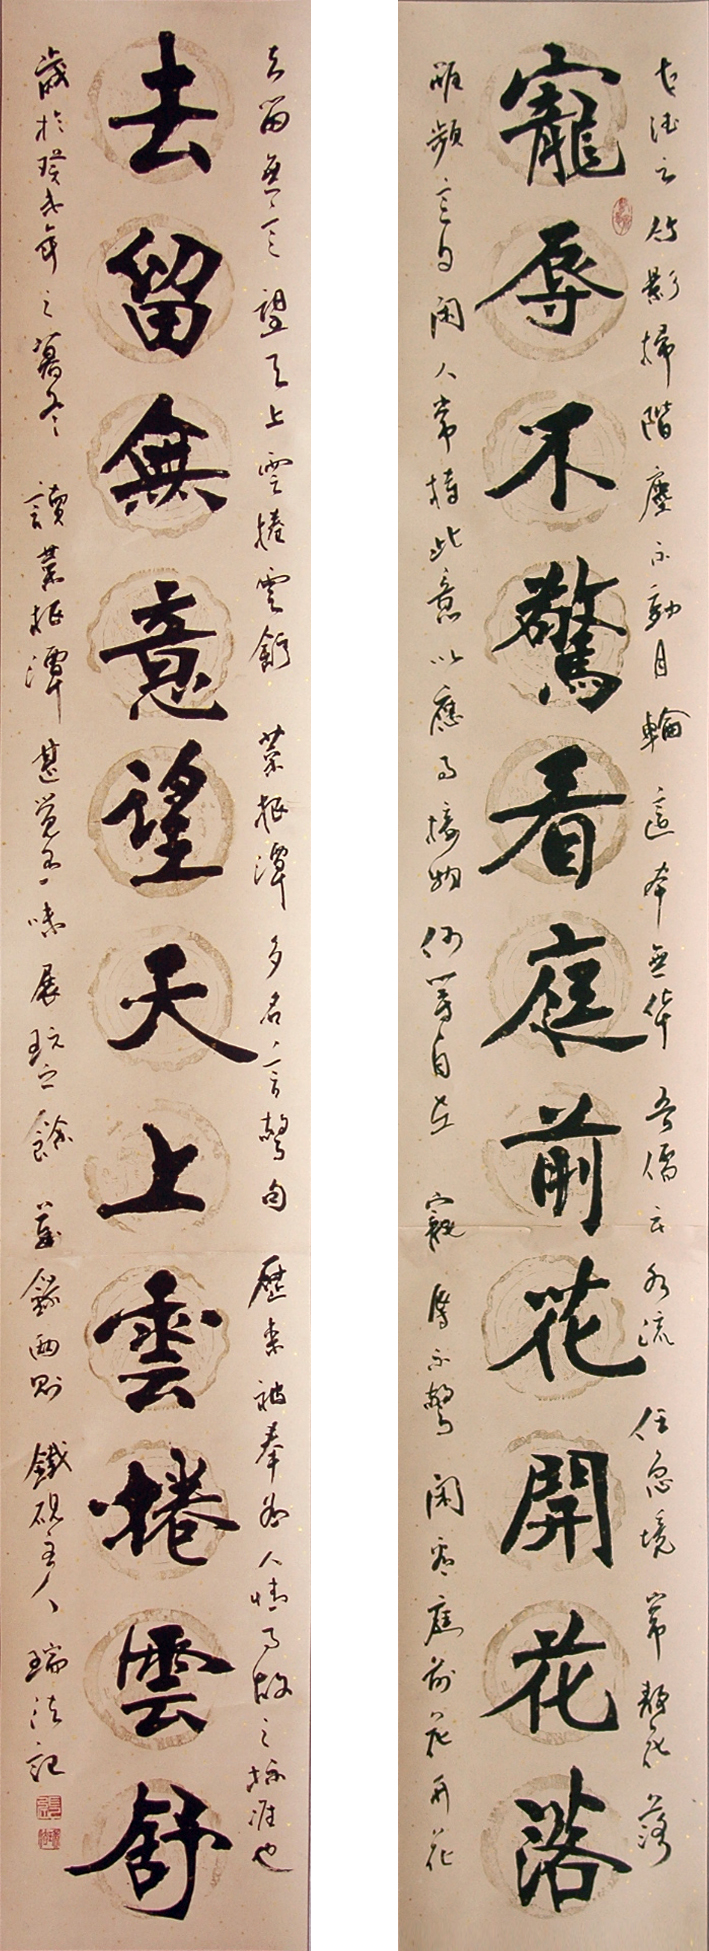 古德云竹影掃階塵不動月輪無吾儒云水流任急境常靜花落
寵辱不驚看庭前花開花落
雖頻意自閑人常持此意以應事接物何等自在寵辱不驚閑看庭前花開花
去留無意望天上雲捲雲舒菜根潭多名言警句歷來被奉為人情事故之標准也
去留無意望天上雲捲雲舒
歲於癸未年之暮冬讀菜根潭甚覺味展玩之餘並錄兩則鐵硯主人瑞法記